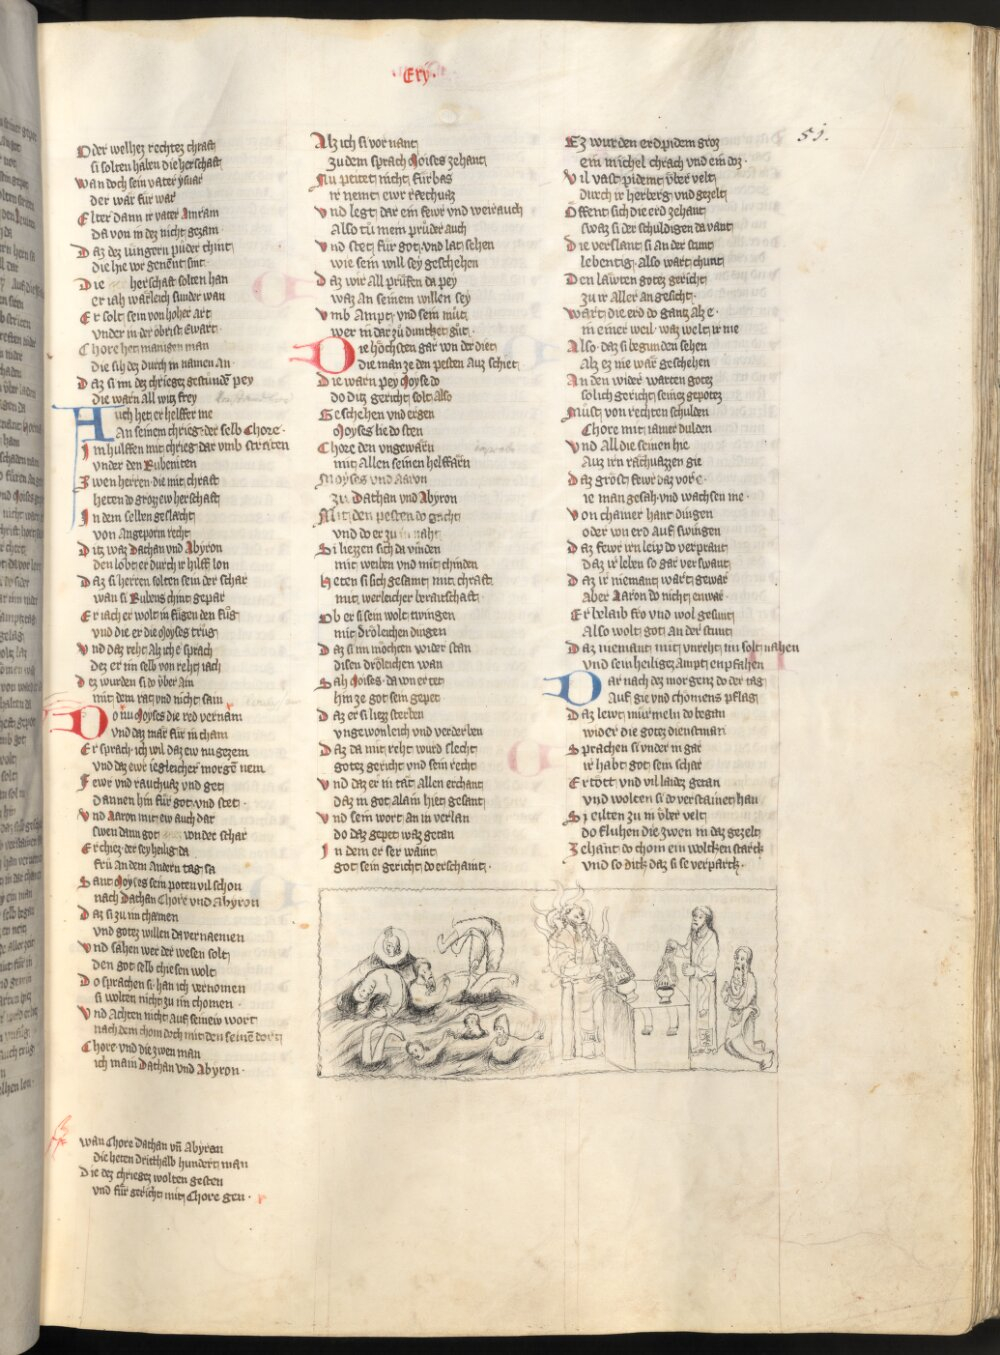 Ery.
51.
Oder welhez rechtez chraft
si solten haben die herschaft
Wan doch sein vater ysuar
der waz fur war
Elter dann ir vater Amram
da von in dez nicht gezam
Daz dez iungern pruder chint
die hie wir genent sint
Die herschaft solten han
er iah warleich sunder wan
Er solt sein von hoher art
vnder in der obrist Ewart
Chore het manigen man
die sich dez durch in namen an
Daz si im dez chriegez gestunden pey
die warn all witz frey
Auch het er helffer me
An seinem chrieg der selb Chore
Im hulffen mit chrieg dar vmb streiten
vnder den Rubeniten
Zwen herren die mit chraft
heten do groz ew herschaft
In dem selben geslacht
von Angeporn recht
Ditz waz Dathan vnd Abyron
den lobt er durch ir hilff lon
Daz si herren solten sein der schar
wan si Rubens chint gepar
Er iach er wolt in fugen den fug
vnd die er die Moyses trug
Vnd daz reht Alz ich e sprach
dez er im selb von reht iach
Dez wurden si do vber Ain
mit dem rat vnd nicht sain
Do nu Moyses die red vernam
vnd daz mar fur in cham
Er sprach ich wil daz ew nu gezem
vnd daz ewr iegleicher morgen nem
Fewr vnd rauchuaz vnd get
dannen hin fur got vnd stet
Vnd Aaron mit ew auch dar
swen dann got von der schar
Erchiez der sey heilig da
fru An dem Andern tag sa
Sant Moyses sein poten vil schon
nach Dathan Chore vnd Abyron
Daz si zu im chamen
vnd gotez willen da vernaemen
Vnd sahen wer der wesen solt
den got selb chiesen wolt
Do sprachen si han ich vernomen
si wolten nicht zu im chomen
Vnd Achten nicht Auf seinew wort
nach dem chom doch mit den seinen dort
Chore vnd die zwen man
ich main Dathan vnd Abyron
Wan Chore Dathan vn Abyron
die heten dritthalb hundert man
Die dez chriegez wolten gesten
vnd fur gericht mit Chore gen
Alz ich si vor nant
zu dem sprach Moises zehant
Nu peitet nicht furbas
ir nemt ewr raechuaz
Vnd legt dar ein fewr vnd weirauch
Also tu mein pruder auch
Vnd stet fur got vnd lat sehen
wie sein will sey geschehen
Daz wir all prufen da pey
waz An seinem willen sey
Vmb Ampt vnd sein mut
wer in dar zu dunchet gut
Die hochsten gar von der diet
die man ze den pesten Auz schiet
Die warn pey Moyse do
do ditz gericht solt also
Geschehen vnd ergen
Moyses lie do sten
Chore den vngewarn
mit Allen seinen helffarn
Moyses vnd Aaron
zu Dathan vnd Abyron
Mit den pesten do gicht
vnd do er zu in naht
Si liezzen sich da vinden
mit weiben vnd mit chinden
Heten si sich gesamt mit chraft
mit werleicher beraitschaft
Ob er si sein wolt twingen
mit droleichen dingen
Daz si im mochten wider stan
disen droleichen wan
Sah Moises da von er tet
hin ze got sein gepet
Daz er si liez sterben
vngewonleich vnd verderben
Daz da mit reht wurd slecht
gotez gericht vnd sein recht
Vnd daz er in tat Allen erchant
daz in got Alain hiet gesant
Vnd sein wort An in verlan
do daz gepet waz getan
In dem er ser waint
got sein gericht do erschaint
Ez wurden erdpidem groz
ein michel chrach vnd ein doz
Vil vast pidemt vber velt
durch ir herberg vnd gezelt
Offent sich die erd zehant
swaz si der schuldigen da vant
Die verslant si An der stunt
lebentig also wart chunt
Den lawten gotez gericht
zu ir aller angesicht
Wart die erd do gantz alz e
in einer weil waz welt ir me
Also daz si begunden sehen
Alz ez nie war geschehen
An den wider warten gotez
solich gericht seinez gepotez
Must von rechten schulden
Chore mit iamer dulden
Vnd All die seinen hie
Auz irn rachuazzen gie
Daz grost fewr daz vor e
ie man gesah vnd wachsen me
Von chainer hant dingen
oder von erd Auf swingen
Daz fewr irn leip do verprant
daz ir leben so gar verswant
Daz ir niemant wart gewar
Aber Aaron do nicht enwar
Er belaib fro vnd wol gesunt
Also wolt got an der stunt
Daz niemant mit vnreht im solt nahen
vnd sein heiligez Ampt enpfahen
Dar nach dez morgenz do der tag
Auf gie vnd chomens pflag
Daz lewt murmeln do began
wider die gotez dienstman
Sprachen si vnder in gar
ir habt got sein schar
Ertott vnd vil laidez getan
vnd wolten si do verstainet han
Si eilten zu in vber velt
do fluhen die zwen in daz gezelt
Zehant do chom ein wolkhen starck
vnd so dick daz si se verparck